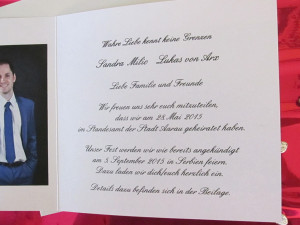 Wahre Liebe kennt keine Grenzen
Sandra Milic Lukas von Arx
Liebe Familie und Freunde
Wir freuen uns sehr euch mitzuteilen,
dass wir am 28. Mai 2015
in Standesamt der Stadt Aarau geheiratet haben.
Unser Fest werden wir wie bereits angekündigt
am 5. September 2015 in Serbien feiern.
Dazu laden wir dich/euch herzlich ein.
Details dazu befinden sich in der Beilage.